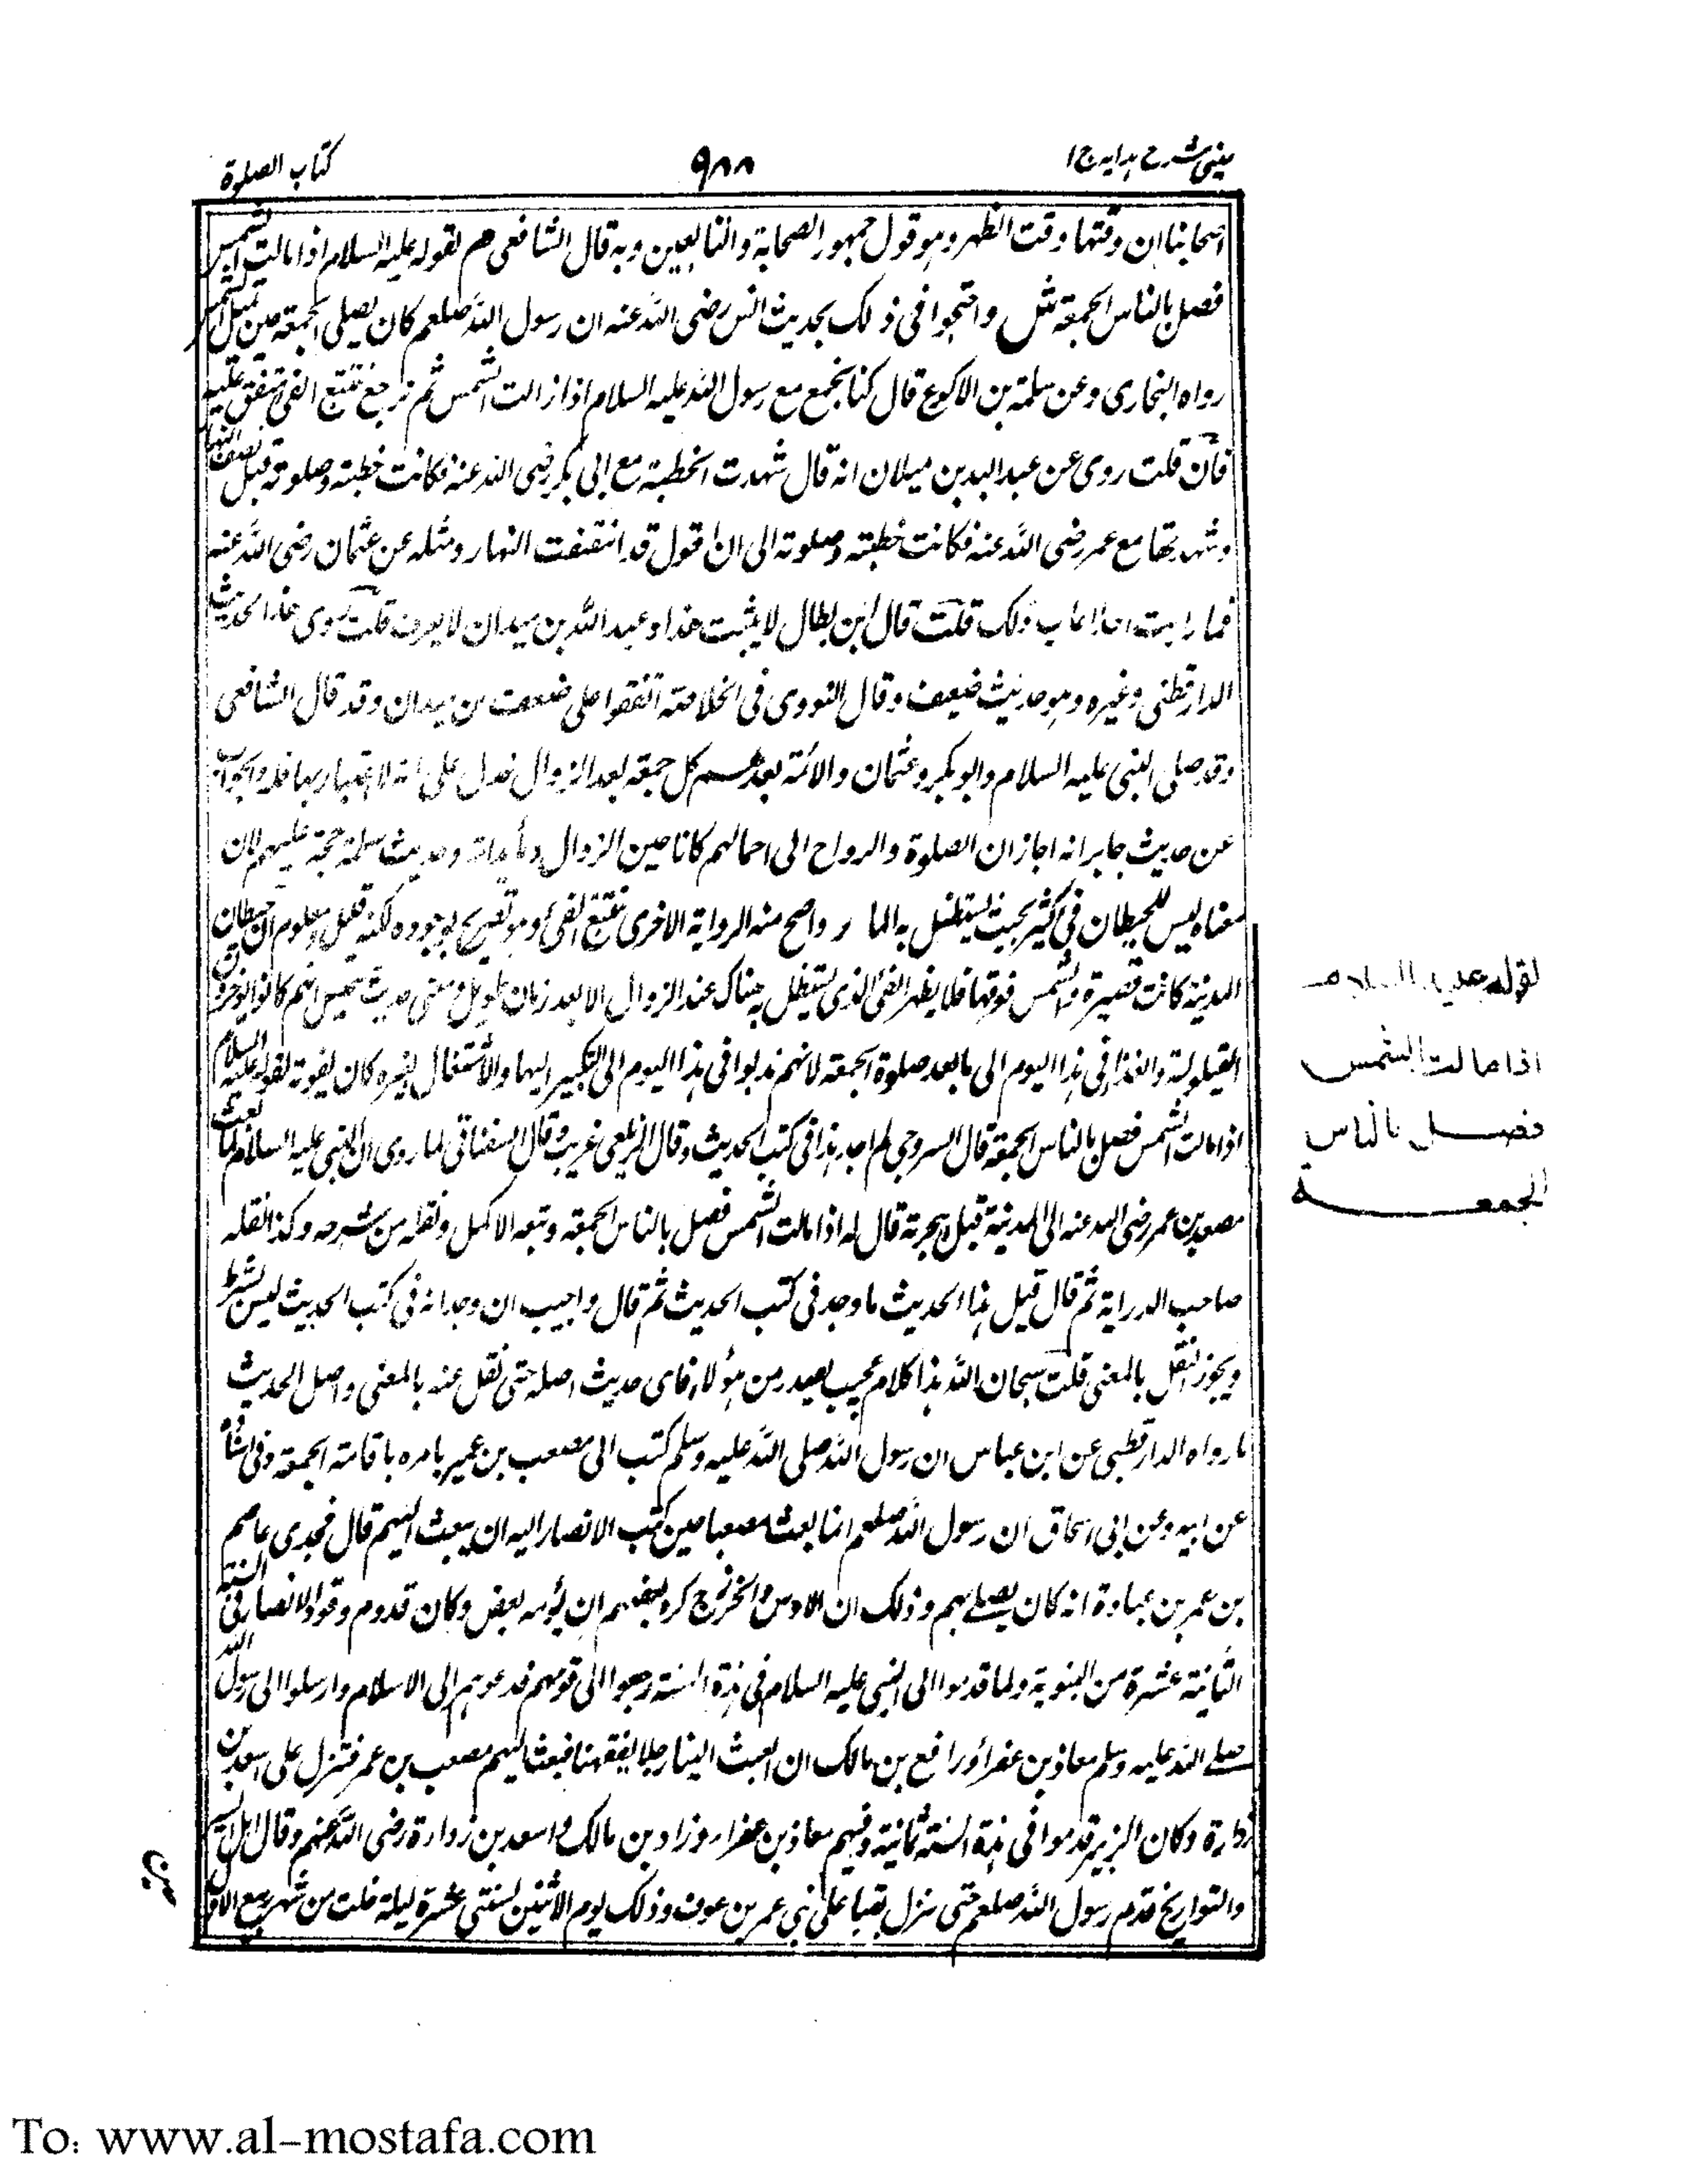 عینی شرح ہدایہ ج ا
٩٨٨
کتاب الصلوة
اصحابنا ان وقتها وقت الظهر وهو قول جمهور الصحابة والتابعين وبه قال الشافعى هم لقوله عليه السلام اذا مالت الشمس
فصل بالناس الجمعة ش واحتجوا فى ذلك بحديث انس رضى الله عنه ان رسول الله صلعم كان يصلى الجمعة حين تميل الشمس
رواه البخارى وعن سلمة بن الاكوع قال كنا نجمع مع رسول الله عليه السلام اذا زالت الشمس ثم نرجع نتتبع الفئ متفق عليه
فان قلت روى عن عبد الله بن سيلان انه قال شهدت الخطبة مع ابى بكر رضى الله عنه فكانت خطبته وصلوته قبل نصف النهار
وشهدتها مع عمر رضى الله عنه فكانت خطبته وصلوته الى ان اقول قد انتصفت النهار ومثله عن عثمان رضى الله عنه
فما رايت احدا عاب ذلك قلت قال ابن بطال لا يثبت هذا وعبد الله بن سيدان لا يعرف قلت روى هذا الحديث
الدارقطنى وغيره وهو حديث ضعيف وقال النووى فى الخلاصة اتفقوا على ضعف بن سيدان وقد قال الشافعى
وقد صلى النبى عليه السلام وابو بكر وعثمان والائمة بعدهم كل جمعة بعد الزوال فدل على انه لا اعتبار بما والجواب
عن حديث جابر انه اجاز ان الصلوة والرواح الى احمالهم كانا حين الزوال وحديث سلمة حجة عليهم لان
معناه ليس للحيطان فئ كثير بحيث يستظل به المار واضح منه الرواية الاخرى نتتبع الفئ وهو تصريح بوجوده لكنه قليل ومعلوم ان حيطان
المدينة كانت قصيرة والشمس فوقها فلا يظهر الفئ الذى يستظل به هناك عند الزوال الا بعد زمان طويل ومعنى حديث انهم كانوا يؤخرون
القيلولة والغذاء فى هذا اليوم الى ما بعد صلوة الجمعة لانهم ندبوا فى هذا اليوم الى التبكير اليها والاشتغال بغيره كان يفوته لقوله عليه السلام
اذا مالت الشمس فصل بالناس الجمعة قال السروجى لم اجد هذا فى كتب الحديث وقال الزيلعى غريب وقال السغناقى لما روى ان النبى عليه السلام لما بعث
مصعب بن عمر رضى الله عنه الى المدينة قبل هجرته قال له اذا مالت الشمس فصل بالناس الجمعة وتبعه الاكمل ونقله من شرحه وكذا نقله
صاحب الدراية ثم قال قيل هذا الحديث ما وجد فى كتب الحديث ثم قال واجيب ان وجدانه فى كتب الحديث ليس بشرط
ويجوز النقل بالمعنى قلت سبحان الله هذا كلام عجيب يصدر من هؤلاء فاى حديث اصله حتى نقل عنه بالمعنى واصل الحديث
ما رواه الدارقطنى عن ابن عباس ان رسول الله صلى الله عليه وسلم كتب الى مصعب بن عمير يامره باقامة الجمعة وفى
عن ابيه وعن ابى اسحاق ان رسول الله صلعم انما بعث مصعبا حين كتب الانصار اليه ان يبعث اليهم قال فحدثى عاصم
بن عمر بن عبادة انه كان يصلى بهم وذلك ان الاوس والخزرج كره بعضهم ان يؤمه بعض وكان قدوم وفود الانصار فى السنة
الثانية عشرة من النبوية ولما قدموا الى النبى عليه السلام فى هذه السنة رجعوا الى قومهم فدعوهم الى الاسلام وارسلوا الى رسول الله
صلى الله عليه وسلم معاذ بن عفراء ورافع بن مالك ان ابعث الينا رجلا يفقهنا فبعث اليهم مصعب بن عمر فنزل على اسعد بن
زرارة وكان الزبير قدموا فى هذه السنة ثمانية وفيهم معاذ بن عفراء وزاد بن مالك واسعد بن زرارة رضى الله عنهم وقال اهل السير
والتواريخ قدم رسول الله صلعم حتى نزل بقبا على بنى عمر بن عوف وذلك يوم الاثنين لثنتى عشرة ليلة خلت من شهر ربيع الاول
لقوله عليه السلام
اذا مالت الشمس
فصل بالناس
الجمعة
To: www.al-mostafa.com